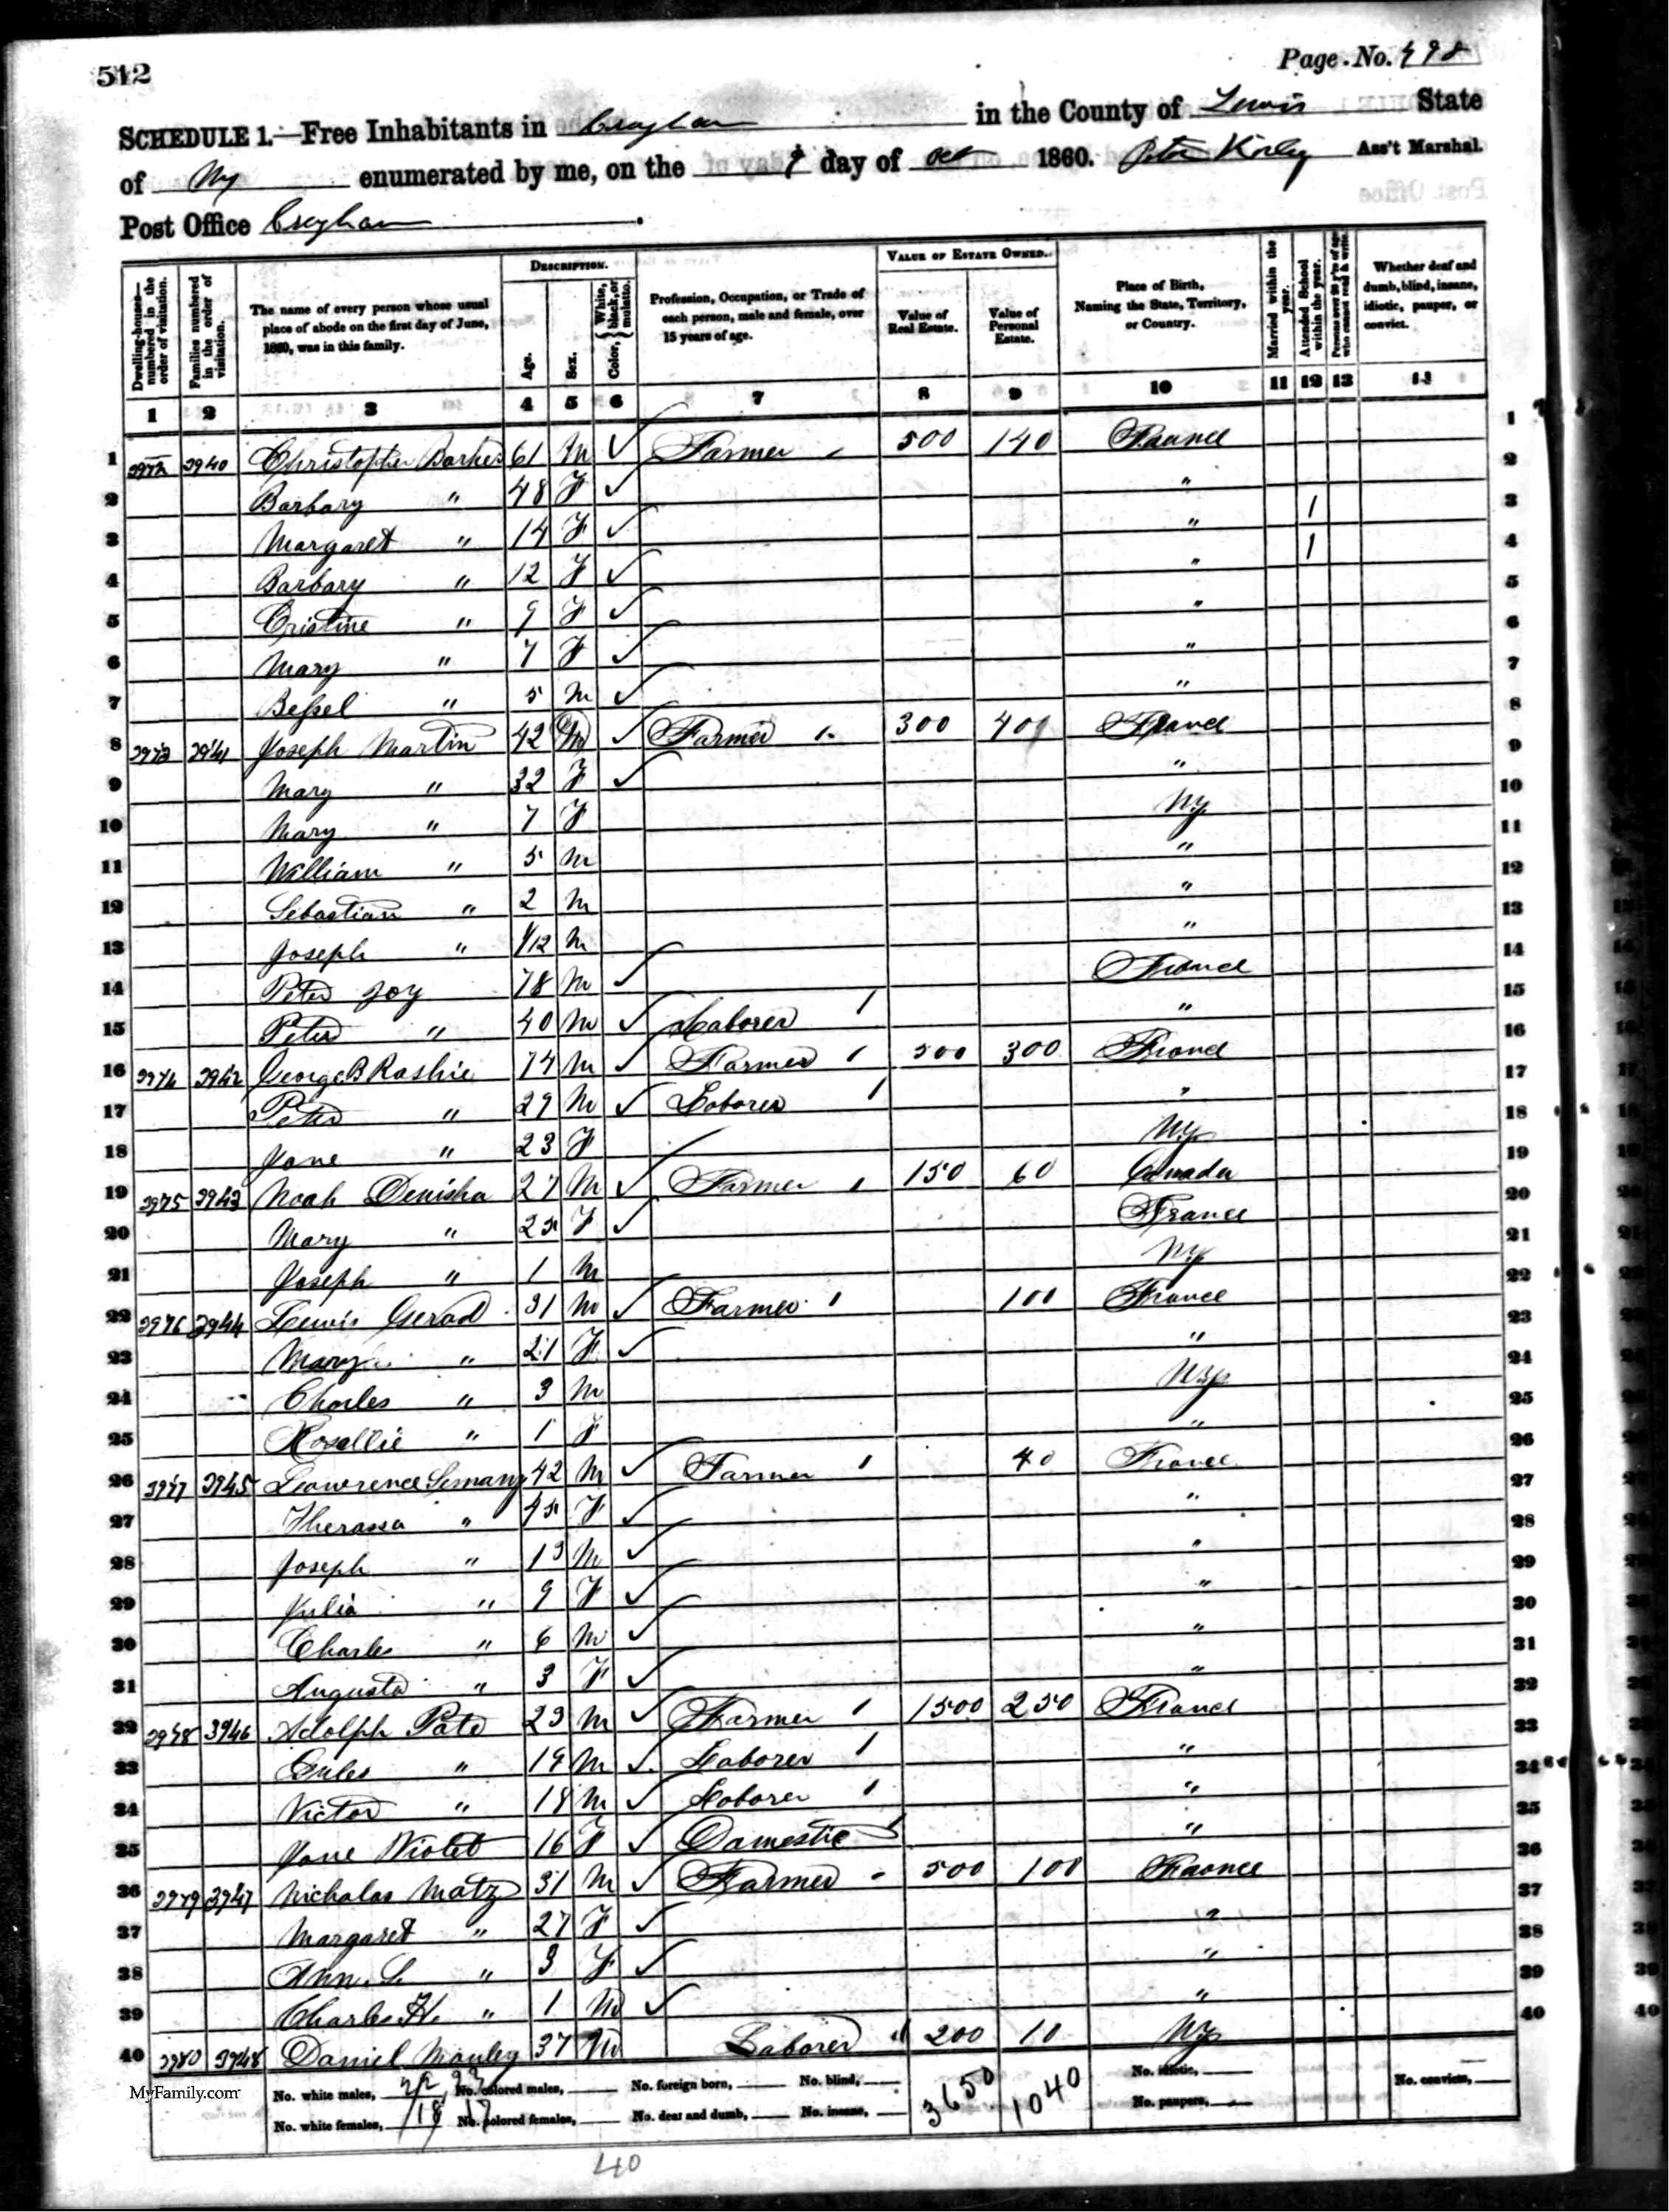 512
Page No. 498
SCHEDULE 1.—Free Inhabitants in Croghan in the County of Lewis State
of Ny enumerated by me, on the 9 day of Oct 1860. Peter Kirley Ass't Marshal.
Post Office Croghan
Dwelling-houses—numbered in the order of visitation.
Families numbered in the order of visitation.
The name of every person whose usual place of abode on the first day of June, 1860, was in this family.
DESCRIPTION.
Age.
Sex.
Color, { White, black, or mulatto.
Profession, Occupation, or Trade of each person, male and female, over 15 years of age.
VALUE OF ESTATE OWNED.
Value of Real Estate.
Value of Personal Estate.
Place of Birth, Naming the State, Territory, or Country.
Married within the year.
Attended School within the year.
Persons over 20 y'rs of age who cannot read & write.
Whether deaf and dumb, blind, insane, idiotic, pauper, or convict.
1 2 3 4 5 6 7 8 9 10 11 12 13 14
1 3972 3940 Christopher Barker 61 M ✓ Farmer 500 140 France 1
2 Barbary " 48 F ✓ " 2
3 Margaret " 14 F ✓ " 1 3
4 Barbary " 12 F ✓ " 1 4
5 Cristine " 9 F ✓ " 5
6 Mary " 7 F ✓ " 6
7 Bessel " 5 M ✓ " 7
8 3973 3941 Joseph Martin 42 M ✓ Farmer 300 400 France 8
9 Mary " 32 F ✓ " 9
10 Mary " 7 F Ny 10
11 William " 5 M " 11
12 Sebastian " 2 M " 12
13 Joseph " 1/12 M " 13
14 Peter Joy 78 M ✓ France 14
15 Peter " 40 M ✓ Laborer " 15
16 3974 3942 George B Rashie 74 M ✓ Farmer 500 300 France 16
17 Peter " 29 M ✓ Laborer " 17
18 Jane " 23 F Ny 18
19 3975 3943 Noah Denisha 27 M ✓ Farmer 150 60 Canada 19
20 Mary " 25 F ✓ France 20
21 Joseph " 1 M Ny 21
22 3976 3944 Lewis Gerad 31 M ✓ Farmer 100 France 22
23 Mary " 21 F ✓ " 23
24 Charles " 3 M Ny 24
25 Rosellie " 1 F " 25
26 3977 3945 Lawrence Simany 42 M ✓ Farmer 40 France 26
27 Therassa " 45 F ✓ " 27
28 Joseph " 13 M ✓ " 28
29 Julia " 9 F ✓ " 29
30 Charles " 6 M ✓ " 30
31 Augusta " 3 F ✓ " 31
32 3978 3946 Adolph Pate 23 M ✓ Farmer 1500 250 France 32
33 Gules " 19 M ✓ Laborer " 33
34 Victor " 18 M ✓ Laborer " 34
35 Jane Violet 16 F ✓ Damestic " 35
36 3979 3947 Nicholas Matz 31 M ✓ Farmer 500 100 France 36
37 Margaret " 27 F ✓ " 37
38 Ann. L " 3 F ✓ " 38
39 Charles H. " 1 M ✓ " 39
40 3980 3948 Daniel Manley 37 M Laborer 200 10 Ny 40
MyFamily.com
No. white males, 22 23 No. colored males, No. foreign born, No. blind, 3650 1040 No. idiotic, No. convicts,
No. white females, 18 17 No. colored females, No. deaf and dumb, No. insane, No. paupers,
40